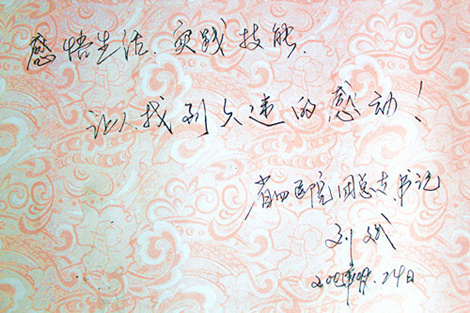 感悟生活、实践技能,
让人找到久违的感动!
省四医院团总支书记
刘斌
2005年09.24日